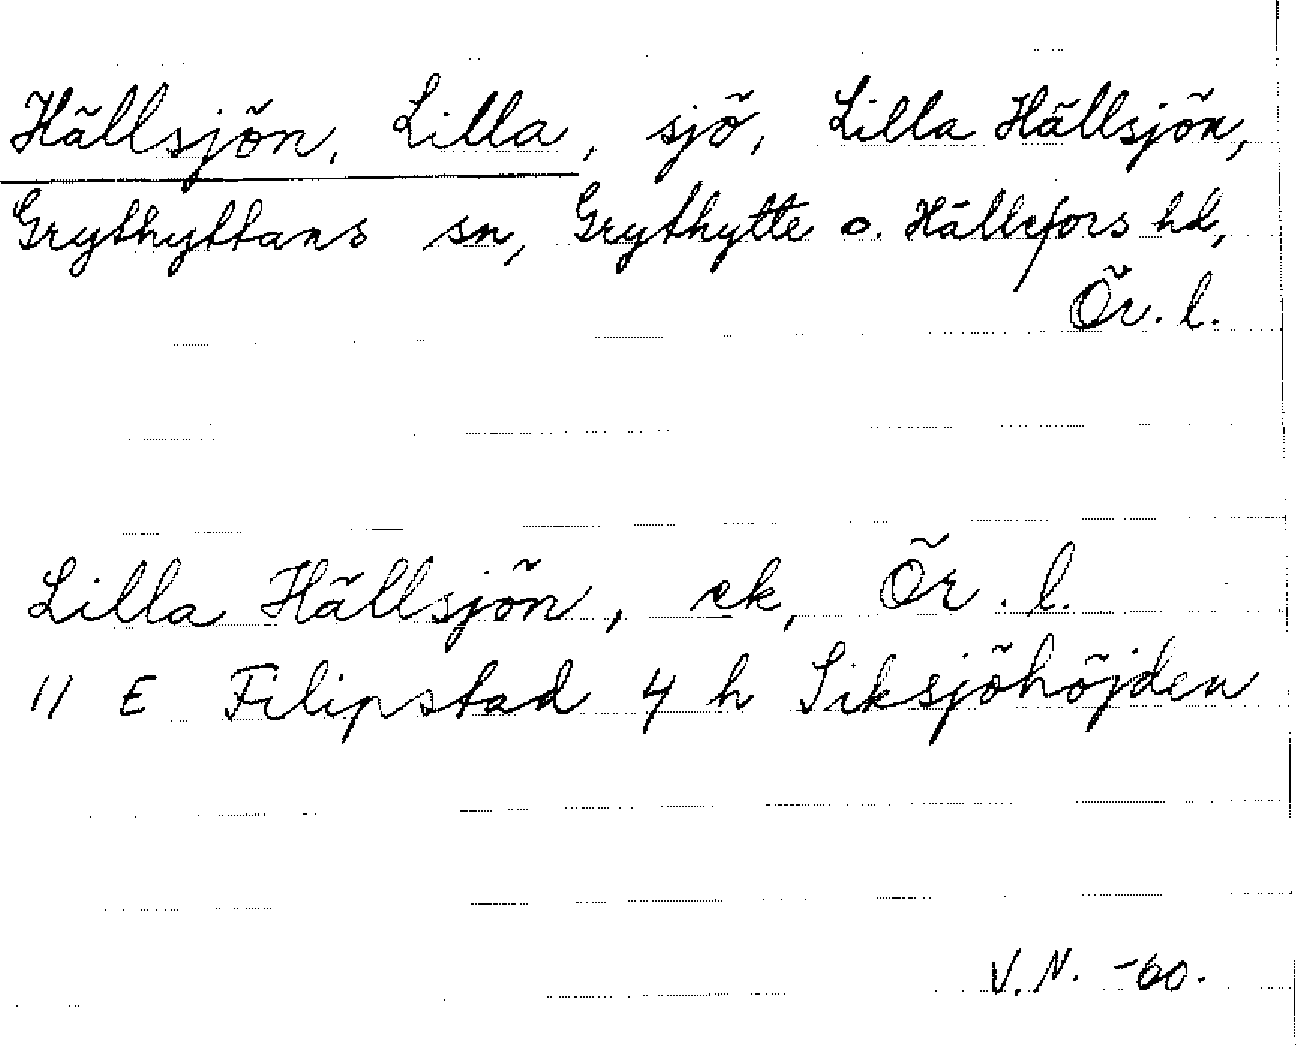 Hällsjön, Lilla, sjö, Lilla Hällsjön,
Grythyttans sn, Grythytte o. Hällefors hd,
Ör. l.
Lilla Hällsjön, ek, Ör. l.
11 E Filipstad 4 h Siksjöhöjden
V. N. -60.